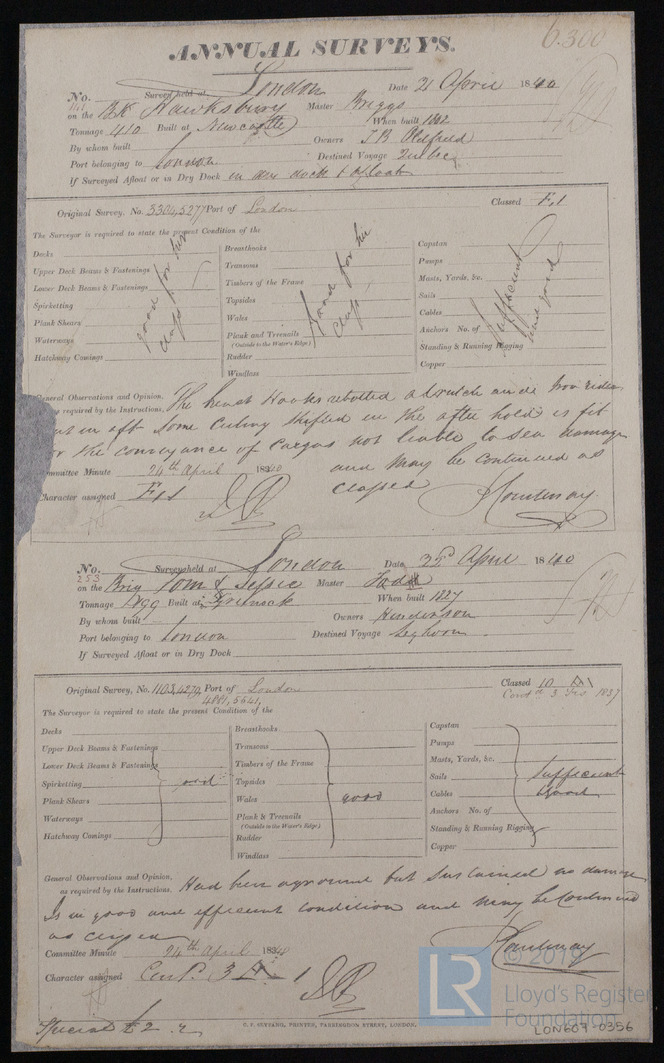 ANNUAL SURVEYS.
6.300
No. Survey held at London Date 21 April 1840
on the Bk Hawksbury Master Briggs
Tonnage 410 Built at Newcastle When built 1802
By whom built Owners J B Oldfield
Port belonging to London Destined Voyage Quebec
If Surveyed Afloat or in Dry Dock in dry dock & afloat
Original Survey, No. 3304,5277 Port of London Classed E.1
The Surveyor is required to state the present Condition of the
Decks
Upper Deck Beams & Fastenings
Lower Deck Beams & Fastenings
Spirketting
Plank Shears
Waterways
Hatchway Comings
good for her class
Breasthooks
Transoms
Timbers of the Frame
Topsides
Wales
Plank and Treenails
(Outside to the Water's Edge)
Rudder
Windlass
good for her class
Capstan
Pumps
Masts, Yards, &c.
Sails
Cables
Anchors No. of
Standing & Running Rigging
Copper
Sufficient and good
General Observations and Opinion, The breast Hooks rebolted a crutch and Iron rider
as required by the Instructions, put in aft some Ceiling Shifted in the after hold is fit
for the conveyance of Cargos not liable to Sea damage
and may be continued as
classed
Committee Minute 24th April 1840
Character assigned E.1
Courtenay
No. Survey held at London Date April 1840
253
on the Brig Tom & Jessie Master Todd
Tonnage Built at Greenock When built 1827
By whom built Owners Henderson
Port belonging to London Destined Voyage Leghorn
If Surveyed Afloat or in Dry Dock
Original Survey, No. 1103,4270, Port of London Classed 10 A1
4881, 5641, Contd 3 Yrs 1837
The Surveyor is required to state the present Condition of the
Decks
Upper Deck Beams & Fastenings
Lower Deck Beams & Fastenings
Spirketting
Plank Shears
Waterways
Hatchway Comings
good
Breasthooks
Transoms
Timbers of the Frame
Topsides
Wales
Plank & Treenails
(Outside to the Water's Edge)
Rudder
Windlass
good
Capstan
Pumps
Masts, Yards, &c.
Sails
Cables
Anchors No. of
Standing & Running Rigging
Copper
Sufficient
& good
General Observations and Opinion,
as required by the Instructions. Had been aground but Sustained no damage
Is in good and efficient condition and may be Continued
as classed
Committee Minute 24th April 1840
Courtenay
Character assigned Cont. 3 A 1
Special £2
C. F. SEYFANG, PRINTER, FARRINGDON STREET, LONDON.
LR © 2019
Lloyd's Register
Foundation
LON607-0356